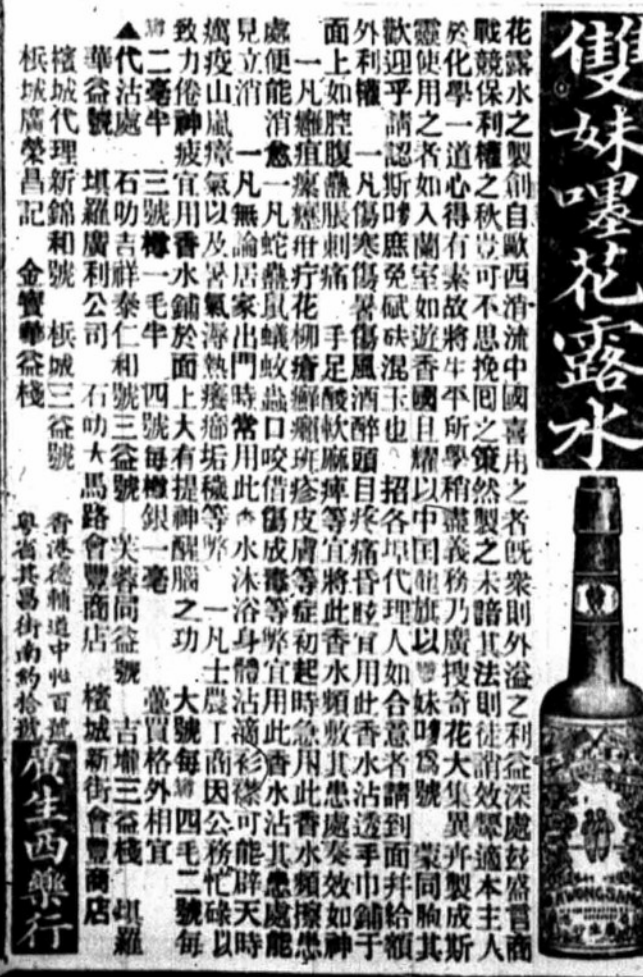 雙妹嚜花露水
花露水之製創自歐西消流中國喜用之者既衆則外溢之利益深處茲盛言商
戰競保利權之秋豈可不思挽囘之策然製之未諳其法則徒誚效顰適本主人
於化學一道心得有素故將生平所學稍盡義務乃廣搜奇花大集異卉製成斯
靈使用之者如入蘭室如遊香國且耀以中国龍旗以雙妹嘜爲號 蒙同胞其
歡迎乎請認斯嘜庶免碔砆混玉也 招各埠代理人如合意者請到面幷給額
外利權 一凡傷寒傷暑傷風酒醉頭目疼痛昏眩宜用此香水沾透手巾鋪于
面上如腔腹蠱脹刺痛 手足酸軟麻痺等宜將此香水頻敷其患處奏效如神
一凡癰疽瘰癧疳疔花柳瘡癬癩班疹皮膚等症初起時急用此香水頻擦患
處便能消愈一凡蛇蟲鼠蟻蚊蟲口咬借傷成毒等弊宜用此香水沾其患處能
見立消 一凡無論居家出門時常用此香水沐浴身體沾滴衫襟可能辟天時
癘疫山嵐瘴氣以及暑氣溽熱癢癤垢穢等弊 一凡士農工商因公務忙碌以
致力倦神疲宜用香水鋪於面上大有提神醒腦之功 大號每罇四毛二號每
罇二毫半 三號樽一毛半 四號每樽銀一毫 躉買格外相宜
▲代沽處 石叻吉祥泰仁和號三益號 芙蓉同益號 吉壠三益棧 埧羅
華益號 埧羅廣利公司 石叻大馬路會豐商店 檳城新街會豐商店
檳城代理新錦和號 梹城三益號
梹城廣榮昌記 金寶華益棧
香港德輔道中 百號
粵省其昌街南約拾號
廣生西藥行
KWONG SANG